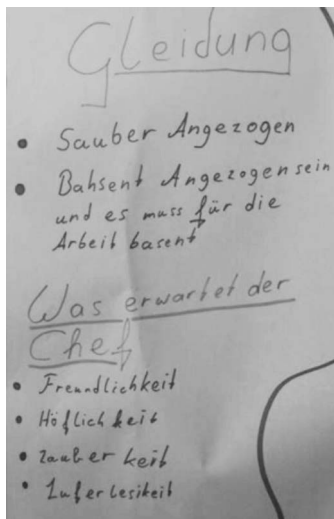 Gleidung
• Sauber Angezogen
• Bahsent Angezogen sein
und es muss für die
Arbeit basent
Was erwartet der
Chef
• Freundlichkeit
• Höflichkeit
• Zauber keit
• Zuferlesikeit